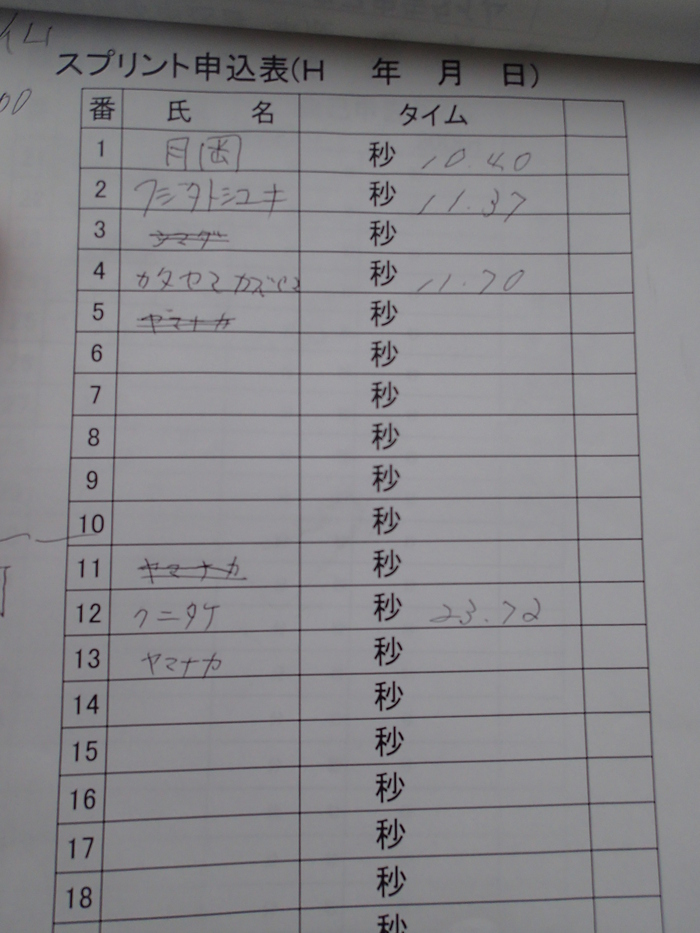 スプリント申込表(H 年 月 日)
番 氏 名 タイム
1 月岡 秒 10.40
2 フジタトシユキ 秒 11.37
3 シマダ 秒
4 カタヤマ カズヤマ 秒 11.70
5 ヤマナカ 秒
6 秒
7 秒
8 秒
9 秒
10 秒
11 ヤマナカ 秒
12 クニタケ 秒 23.72
13 ヤマナカ 秒
14 秒
15 秒
16 秒
17 秒
18 秒
秒